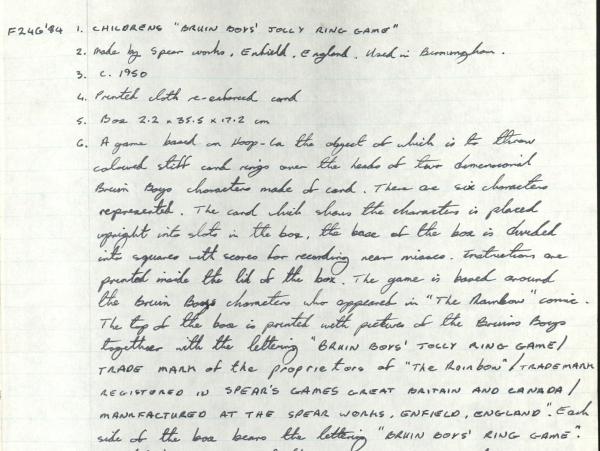 F246'84 1. CHILDRENS "BRUIN BOYS' JOLLY RING GAME"
2. Made by Spear works, Enfield, England. Used in Birmingham.
3. c. 1950
4. Printed cloth re-enforced card
5. Box 2.2 x 35.5 x 17.2 cm
6. A game based on Hoop-La the object of which is to throw
coloured stiff card rings over the heads of two dimensional
Bruin Boys characters made of card. There are six characters
represented. The card which shows the characters is placed
upright into slots in the box, the base of the box is divided
into squares with scores for recording near misses. Instructions are
printed inside the lid of the box. The game is based around
the Bruin Boys characters who appeared in "The Rainbow" comic.
The top of the box is printed with pictures of the Bruins Boys
together with the lettering "BRUIN BOYS' JOLLY RING GAME/
TRADE MARK of the proprietors of "The Rainbow"/TRADEMARK
REGISTERED IN SPEAR'S GAMES GREAT BRITAIN AND CANADA/
MANUFACTURED AT THE SPEAR WORKS, ENFIELD, ENGLAND". Each
side of the box bears the lettering "BRUIN BOYS' RING GAME".